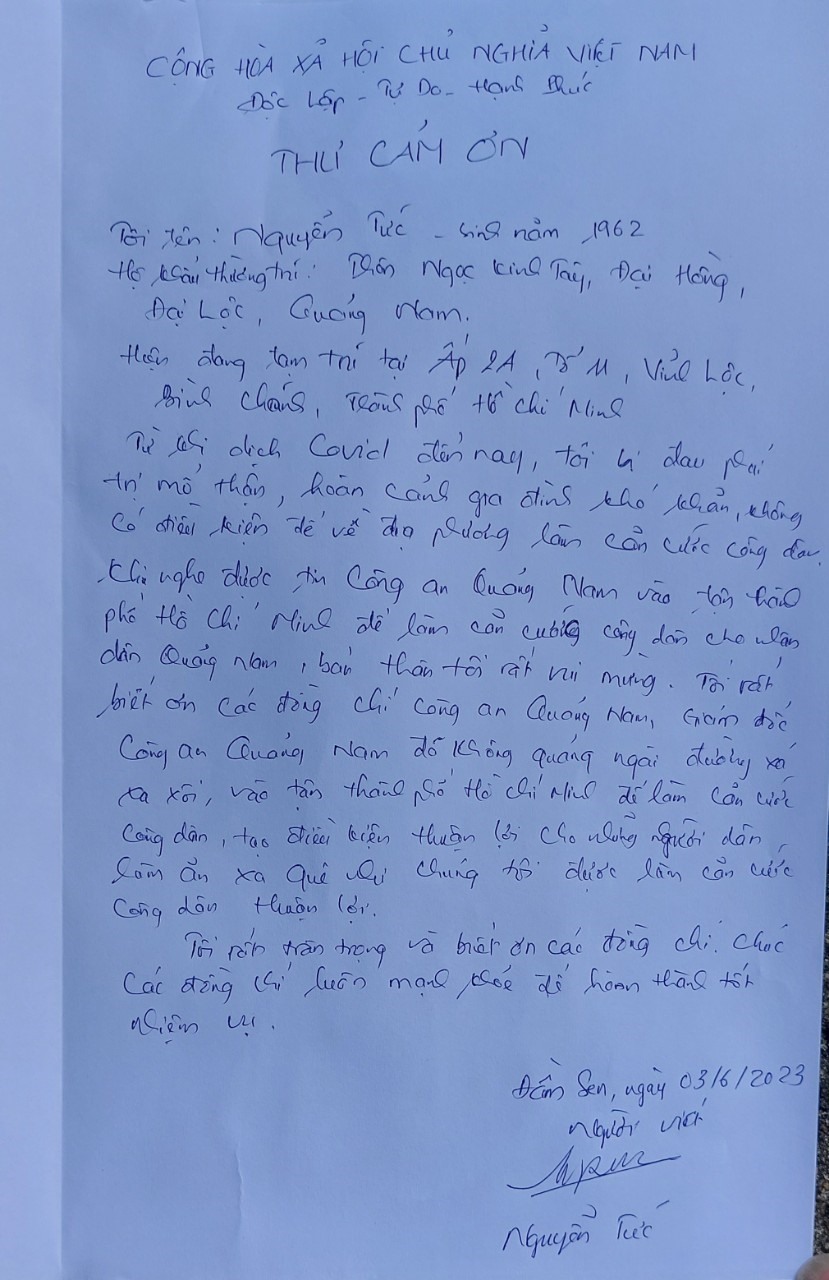 CỘNG HÒA XẢ HỘI CHỦ NGHIẢ VIỆT NAM
Độc Lập - Tự Do - Hạnh Phúc
THƯ CẢM ƠN
Tôi tên: Nguyển Tức - sinh năm 1962
Hộ khẩu thường trí: Thôn Ngọc Kinh Tây, Đại Hồng,
Đại Lộc, Quảng Nam.
Hiện đang tạm trí tại Ấp 2A, Tổ 11, Vỉnh Lộc,
Bình Chánh, Thành phố Hồ Chí Minh
Từ khi dịch Covid đến nay, tôi bị đau phải
trị mổ thận, hoàn cảnh gia đình khó khăn, không
có điều kiện để về địa phương làm căn cước công dân.
Khi nghe được tin Công an Quảng Nam vào tận thành
phố Hồ Chí Minh để làm căn cước công dân cho nhân
dân Quảng Nam, bản thân tôi rất vui mừng. Tôi rất
biết ơn các đồng chí công an Quảng Nam, Giám đốc
Công an Quảng Nam đã không quảng ngại đường xá
xa xôi, vào tận thành phố Hồ Chí Minh để làm căn cước
công dân, tạo điều kiện thuận lợi cho những người dân
làm ăn xa quê như chúng tôi được làm căn cước
công dân thuận lợi.
Tôi rất trân trọng và biết ơn các đồng chí. Chúc
các đồng chí luôn mạnh khoẻ để hoàn thành tốt
nhiệm vụ.
Đầm Sen, ngày 03/6/2023
Người viết
Nguyển Tức